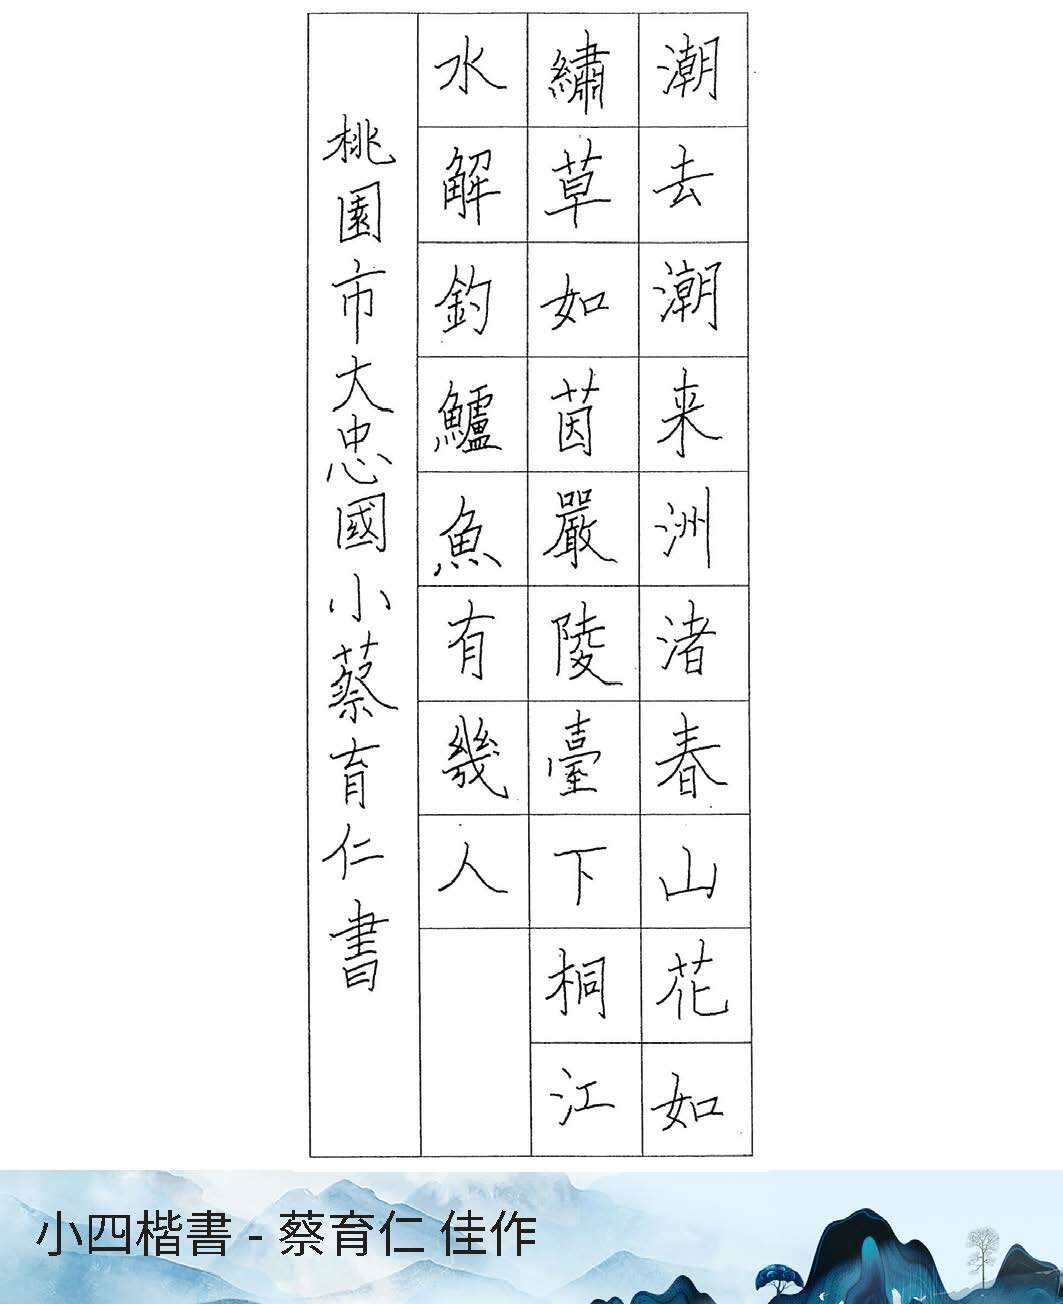 潮去潮来洲渚春山花如
繡草如茵嚴陵臺下桐江
水解釣鱸魚有幾人
桃園市大忠國小蔡育仁書
小四楷書 - 蔡育仁 佳作